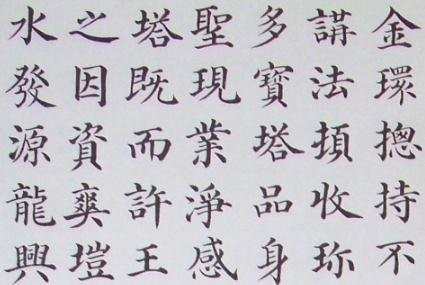 金環摠持不
講法頓收珎
多寶塔品身
聖現業淨感
塔既而許王
之因資爽塏
水發源龍興